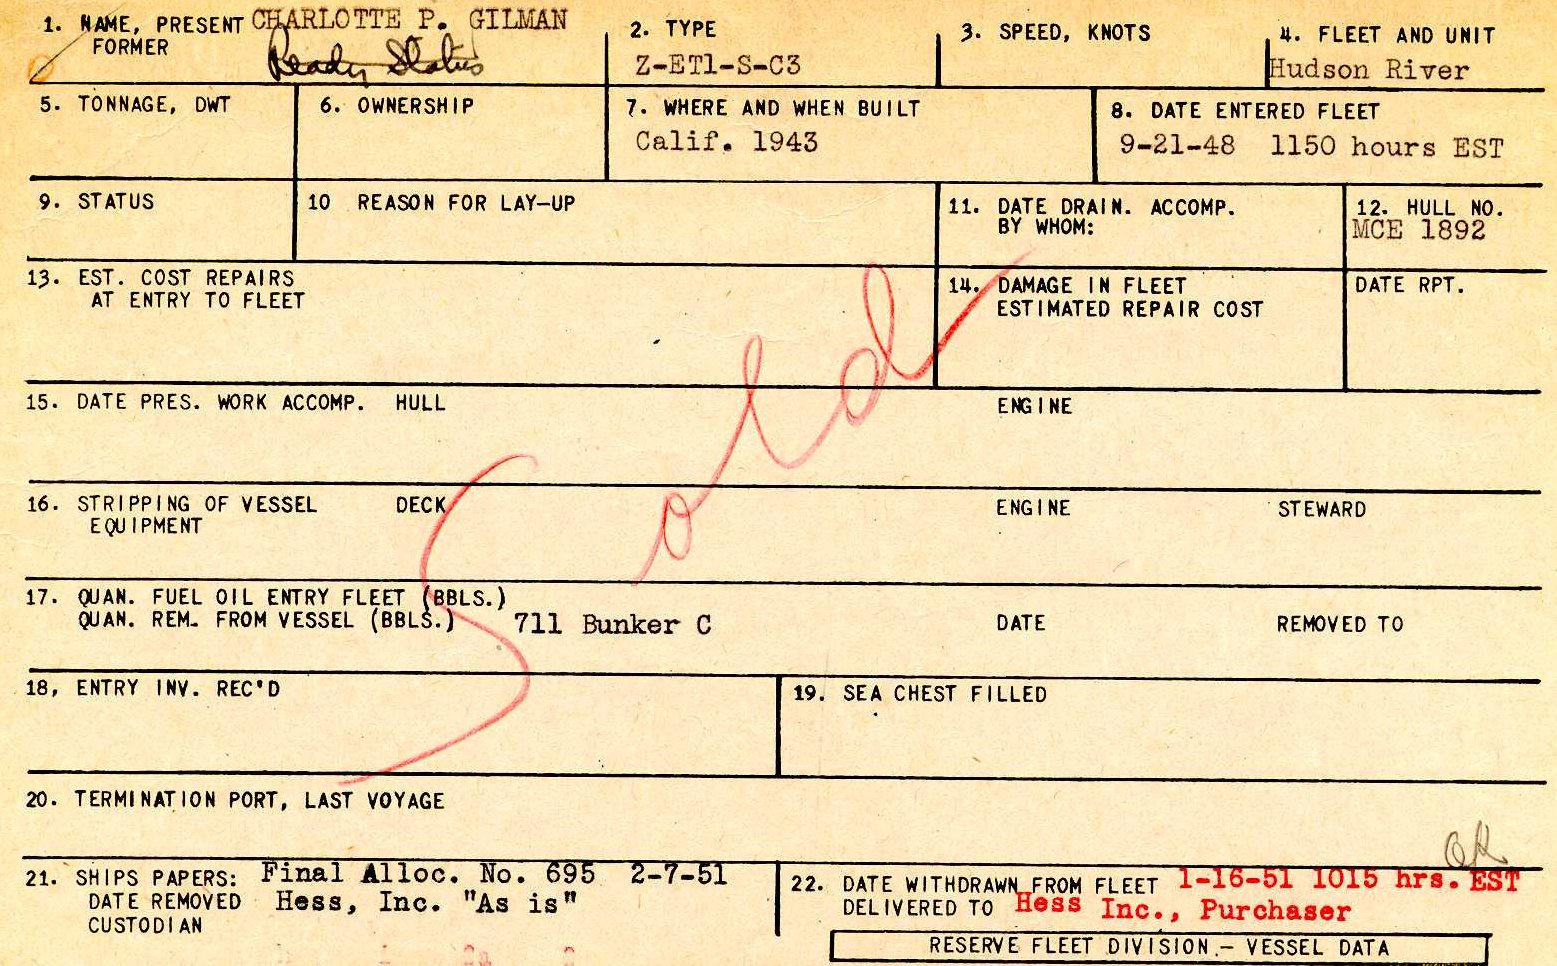 1. NAME, PRESENT CHARLOTTE P. GILMAN
FORMER Ready Status
2. TYPE
Z-ET1-S-C3
3. SPEED, KNOTS
4. FLEET AND UNIT
Hudson River
5. TONNAGE, DWT
6. OWNERSHIP
7. WHERE AND WHEN BUILT
Calif. 1943
8. DATE ENTERED FLEET
9-21-48 1150 hours EST
9. STATUS
10 REASON FOR LAY-UP
11. DATE DRAIN. ACCOMP.
BY WHOM:
12. HULL NO.
MCE 1892
13. EST. COST REPAIRS
AT ENTRY TO FLEET
14. DAMAGE IN FLEET
ESTIMATED REPAIR COST
DATE RPT.
Sold
15. DATE PRES. WORK ACCOMP. HULL ENGINE
16. STRIPPING OF VESSEL DECK ENGINE STEWARD
EQUIPMENT
17. QUAN. FUEL OIL ENTRY FLEET (BBLS.)
QUAN. REM. FROM VESSEL (BBLS.) 711 Bunker C DATE REMOVED TO
18, ENTRY INV. REC'D
19. SEA CHEST FILLED
20. TERMINATION PORT, LAST VOYAGE
21. SHIPS PAPERS: Final Alloc. No. 695 2-7-51
DATE REMOVED Hess, Inc. "As is"
CUSTODIAN
22. DATE WITHDRAWN FROM FLEET 1-16-51 1015 hrs. EST
DELIVERED TO Hess Inc., Purchaser
RESERVE FLEET DIVISION - VESSEL DATA